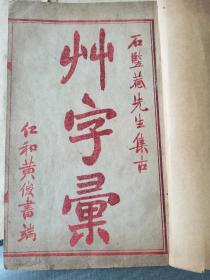 石䀋菴先生集古
艸字彙
仁和黄俊書端